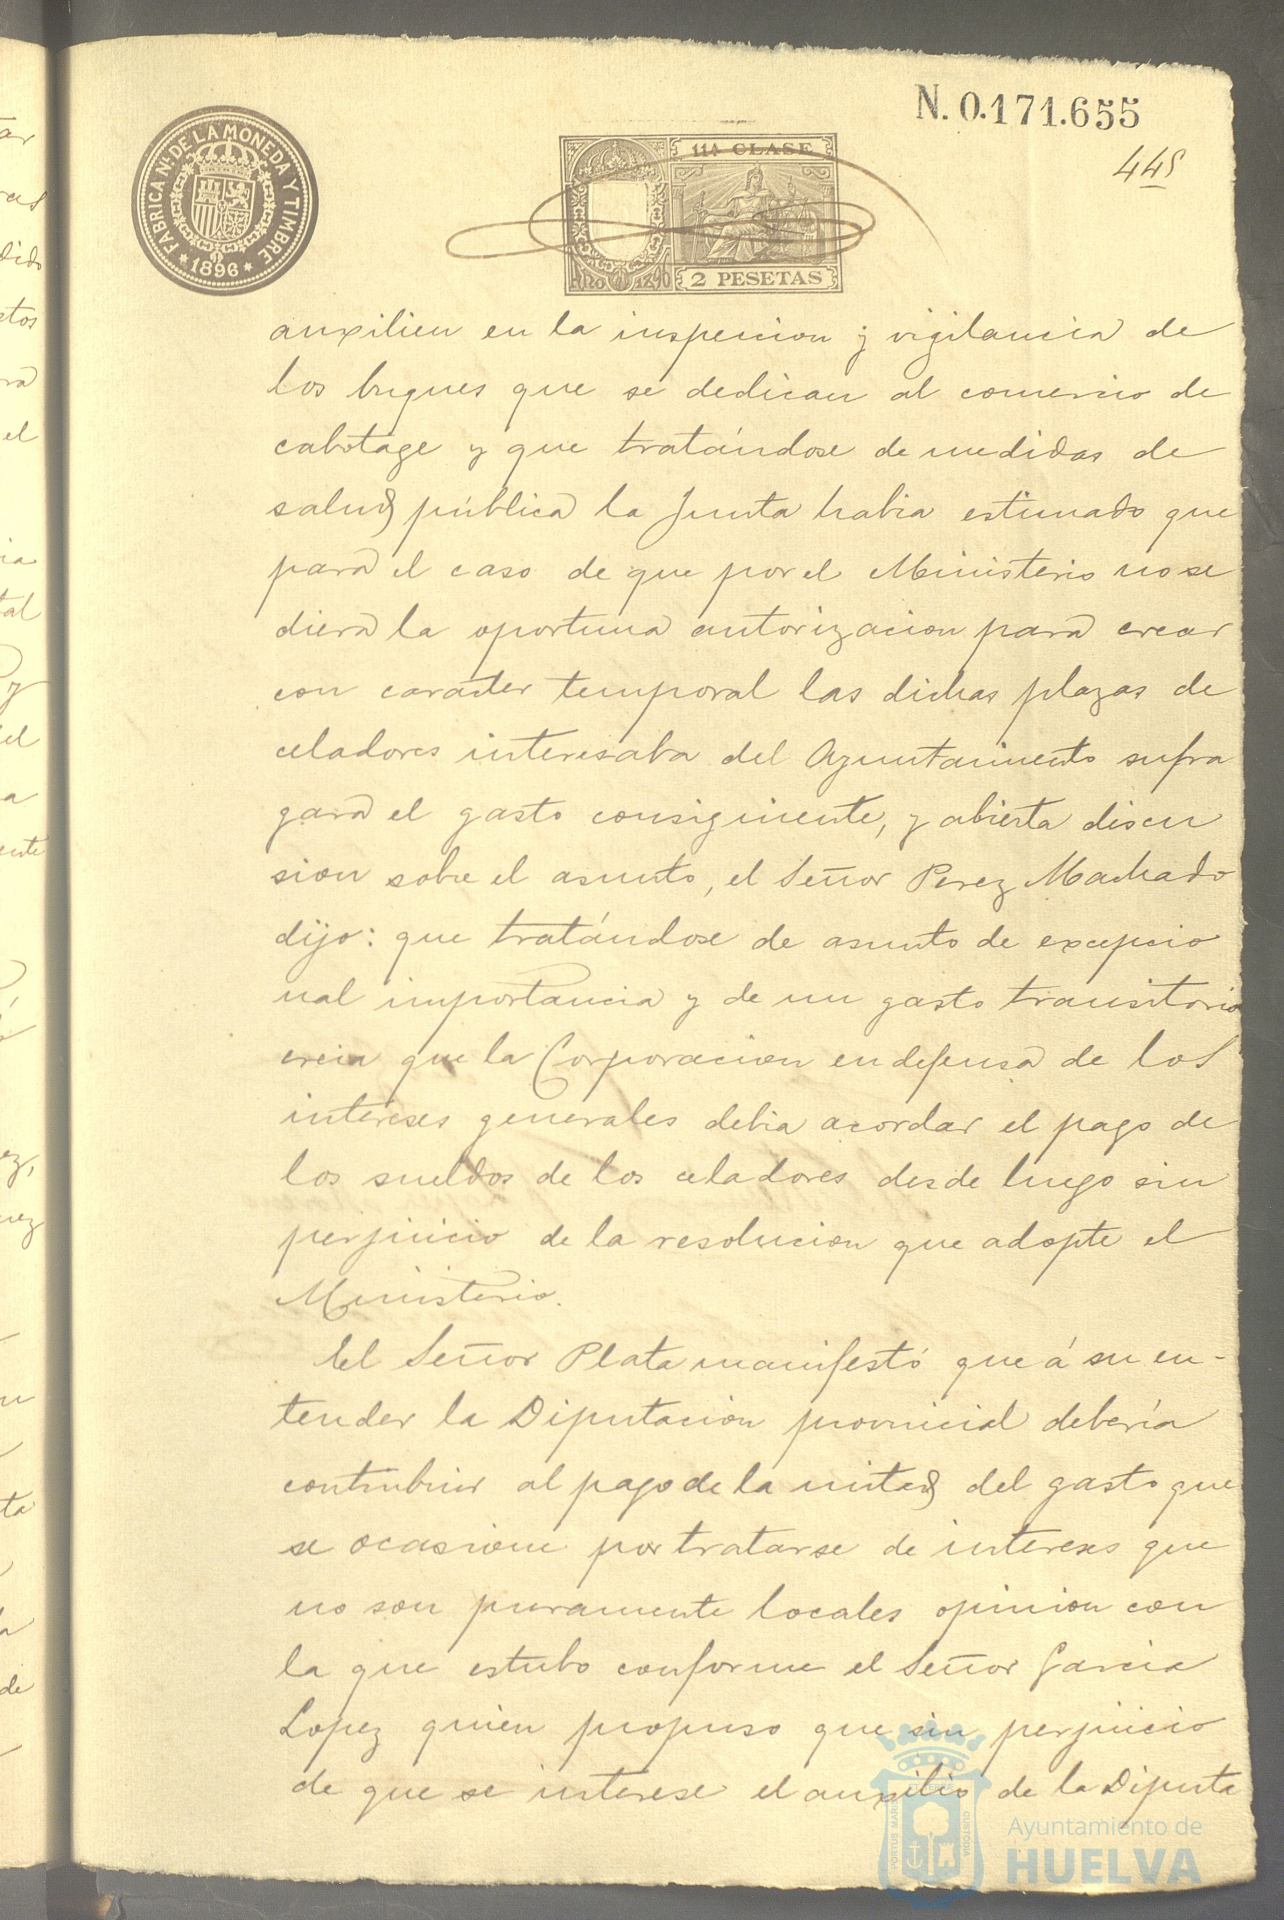 N. 0.171.655
445
FABRICA NL. DE LA MONEDA Y TIMBRE
1896
11ª CLASE
Año 1896
2 PESETAS
auxilien en la inspeccion y vigilancia de
los buques que se dedican al comercio de
cabotage y que tratándose de medidas de
salud pública la Junta habia estimado que
para el caso de que por el Ministerio no se
diera la oportuna autorizacion para crear
con caracter temporal las dichas plazas de
celadores interesaba del Ayuntamiento sufra
gara el gasto consiguiente, y abierta discu
sion sobre el asunto, el Señor Perez Machado
dijo: que tratándose de asunto de excepcio
nal importancia y de un gasto transitorio
creia que la Corporacion en defensa de los
intereses generales debia acordar el pago de
los sueldos de los celadores desde luego sin
perjuicio de la resolucion que adopte el
Ministerio.
El Señor Plata manifestó que á su en-
tender la Diputacion provincial debería
contribuir al pago de la mitad del gasto que
se ocasione por tratarse de intereses que
no son puramente locales opinion con
la que estubo conforme el Señor Garcia
Lopez quien propuso que sin perjuicio
de que se interese el auxilio de la Diputa
PORTUS MARIS
CUSTODIA
Ayuntamiento de
HUELVA